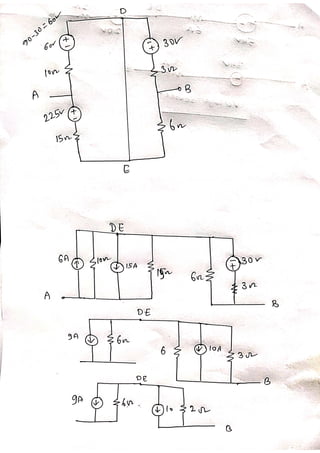 D
90-30=60v
60v
30v
10Ω
3Ω
A
B
225v
6Ω
15Ω
E
DE
6A
10Ω
15A
15Ω
6Ω
30v
3Ω
A
B
DE
9A
6Ω
6
10A
3Ω
B
DE
9A
6Ω
10
2Ω
B